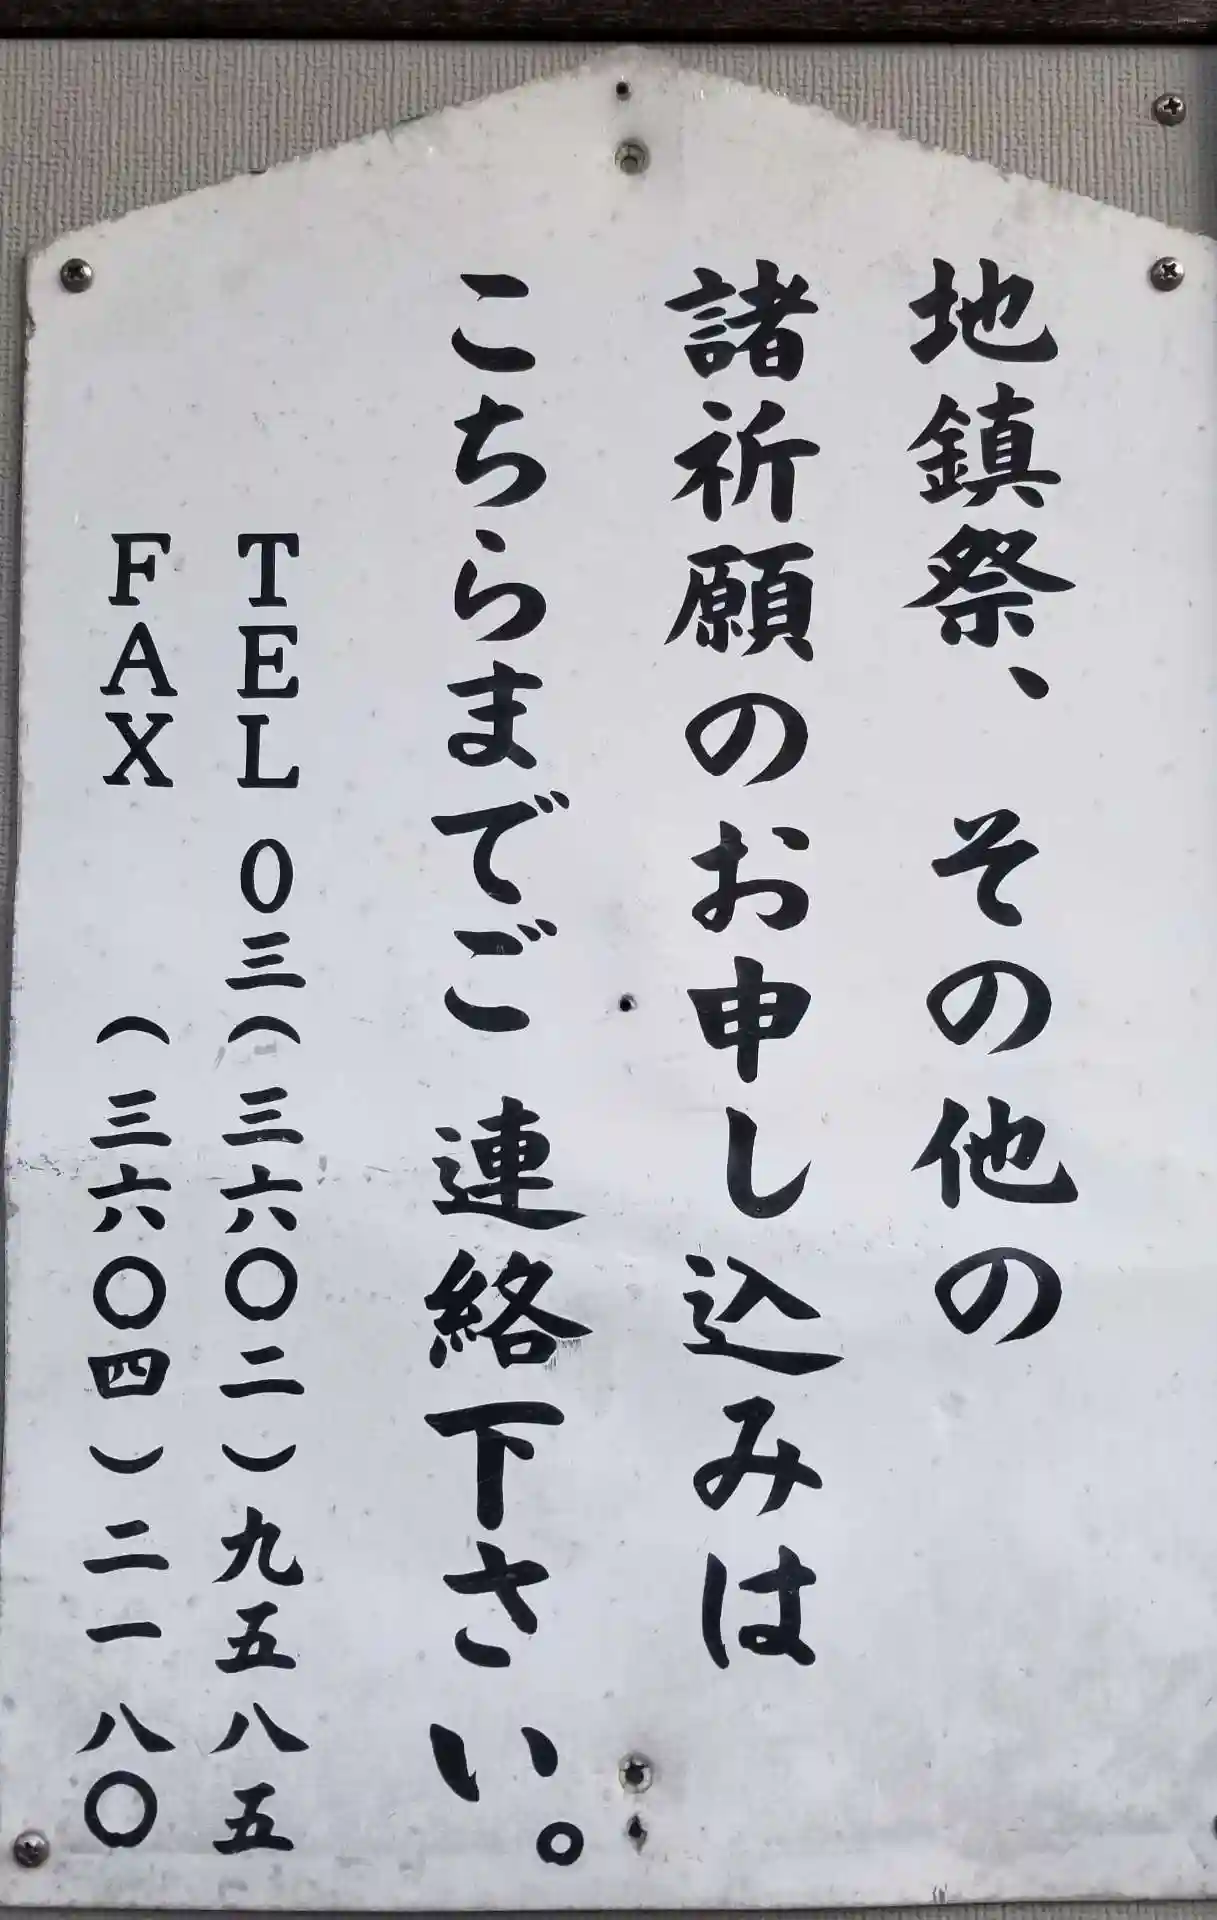 地鎮祭、その他の
諸祈願のお申し込みは
こちらまでご連絡下さい。
TEL 0三(三六〇二)九五八五
FAX (三六〇四)二一八〇